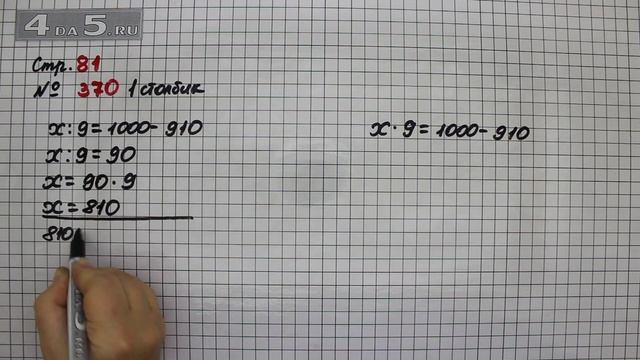 4DA5.RU
Стр. 81
№ 370 1 столбик
x : 9 = 1000 - 910
x : 9 = 90
x = 90 · 9
x = 810
810
x · 9 = 1000 - 910